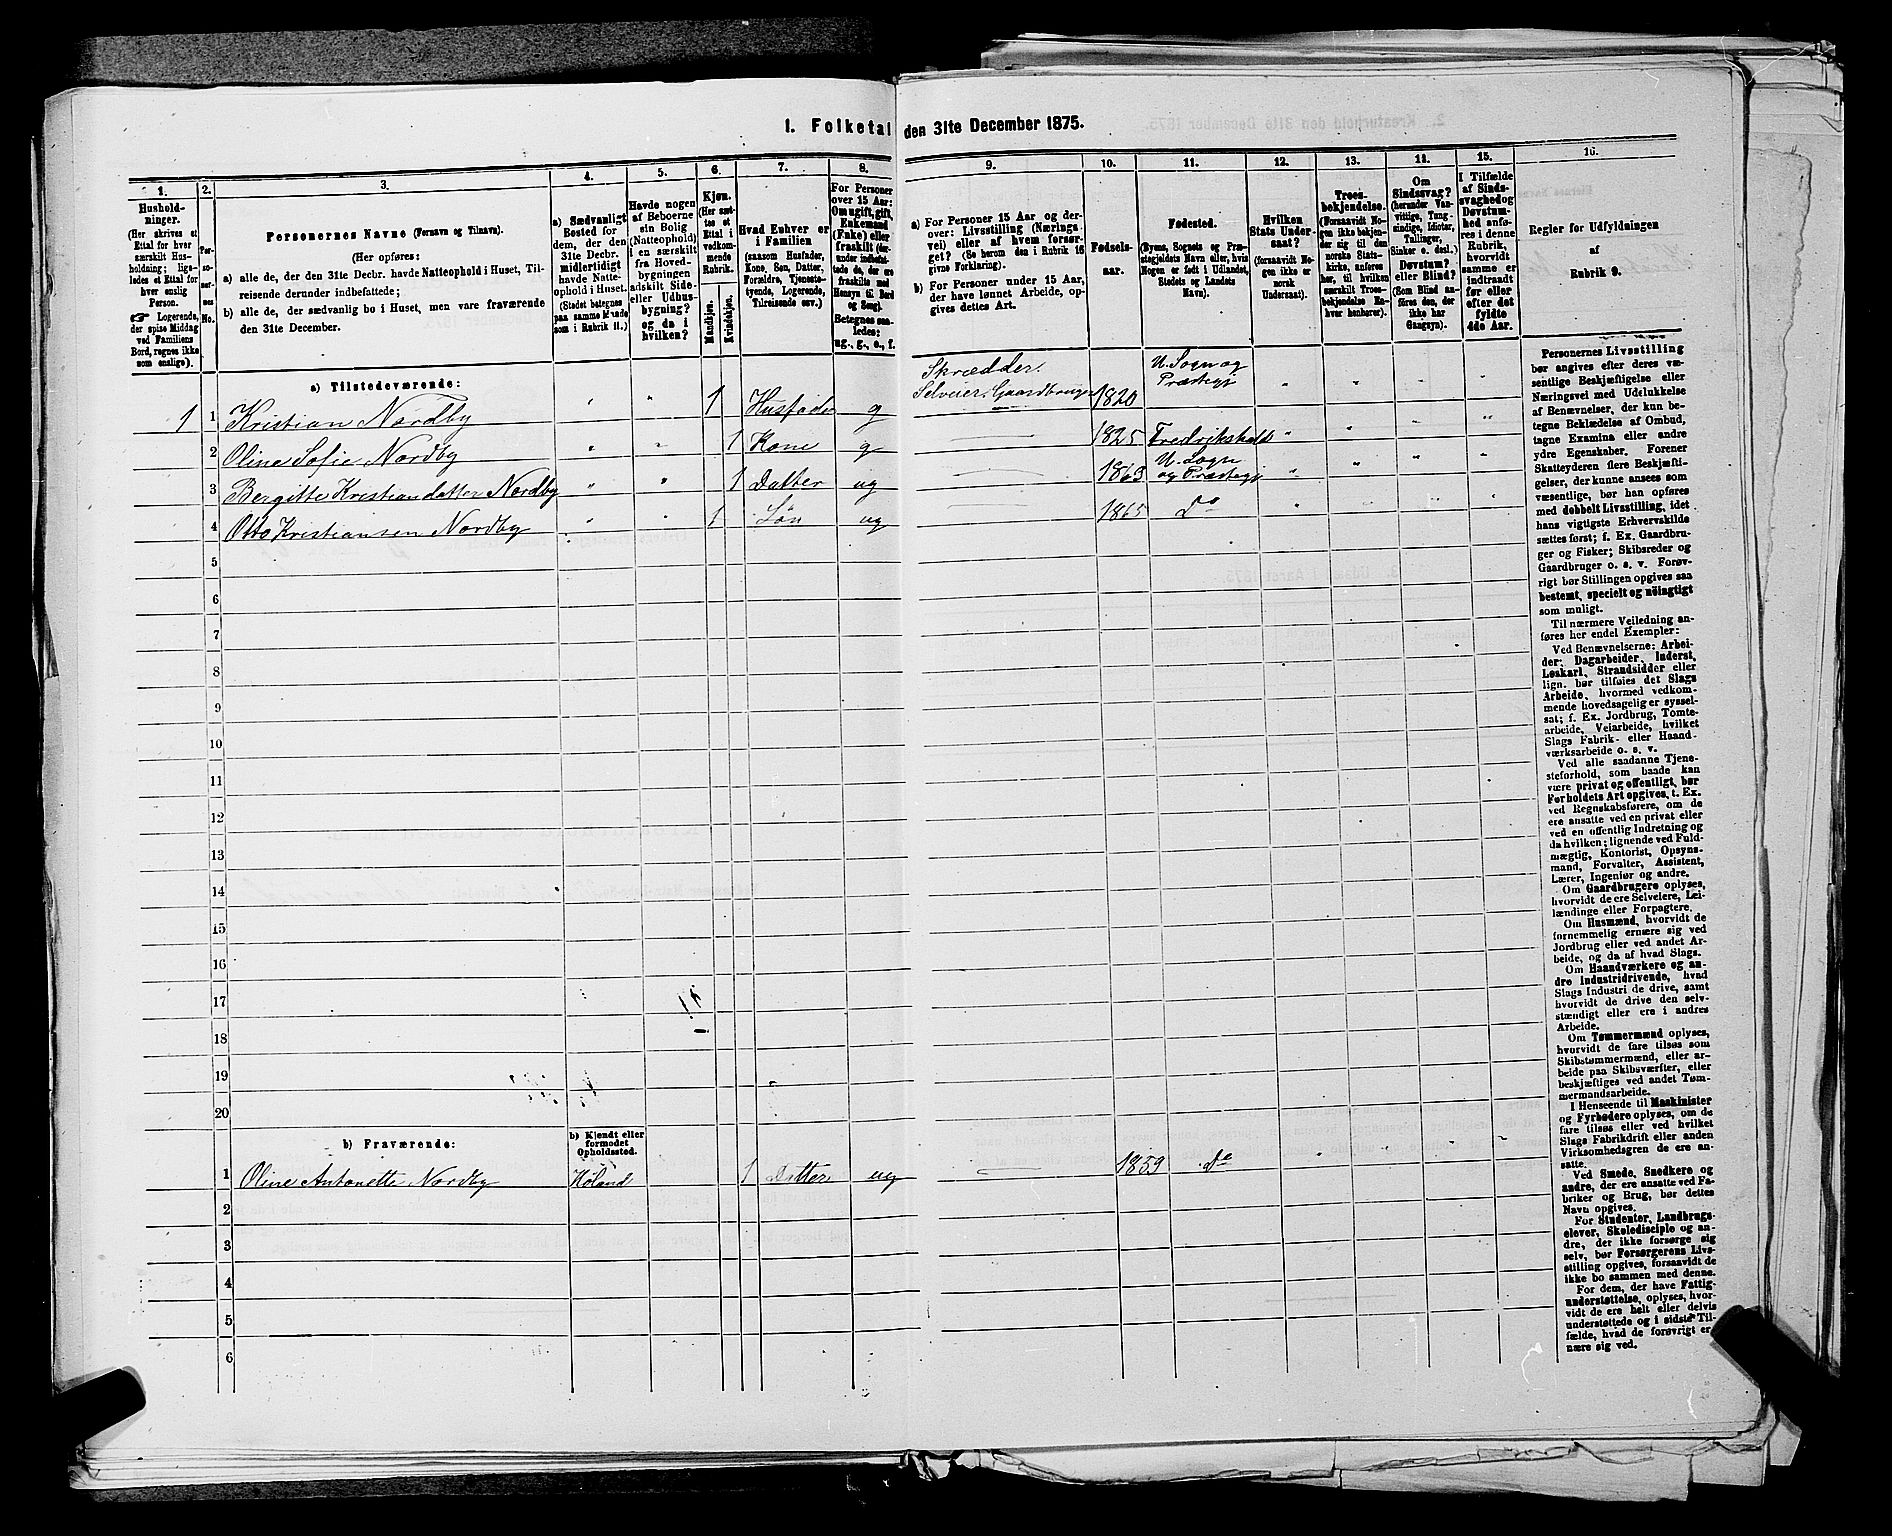 1. Folketal den 31te December 1875.
1. 2. 3. 4. 5. 6. 7. 8. 9. 10. 11. 12. 13. 14. 15. 16.
Hushold-
ninger.
(Her skrives et
Ettal for hver
særskilt Hus-
holdning; lige-
ledes et Ettal for
hver enslig
Person.
☞ Logerende,
der spise Middag
ved Familiens
Bord, regnes ikke
som enslige).
Per-
so-
ner-
nes
No.
Personernes Navne (Fornavn og Tilnavn).
(Her opføres:
a) alle de, der den 31te Decbr. havde Natteophold i Huset, Til-
reisende derunder indbefattede;
b) alle de, der sædvanlig bo i Huset, men vare fraværende
den 31te December.
a) Sædvanligt
Bosted for
dem, der den
31te Decbr.
midlertidigt
havde Natte-
ophold i Huset.
(Stedet betegnes
paa samme Maade
som i Rubrik 11.)
Havde nogen
af Beboerne
sin Bolig
(Natteophold)
i en særskilt
fra Hoved-
bygningen
adskilt Side-
eller Udhus-
bygning?
og da i
hvilken?
Kjøn.
(Her sæt-
tes et
Ettal i
vedkom-
mende
Rubrik.
Mandkjøn.
Kvindekjøn.
Hvad Enhver er
i Familien
(saasom Husfader,
Kone, Søn, Datter,
Forældre, Tjeneste-
tyende, Logerende,
Tilreisende osv.)
For Personer
over 15 Aar:
Om ugift, gift,
Enkemand
(Enke) eller
fraskilt (der-
under indbefat-
tede de, der ere
fraskilte med
Hensyn til Bord
og Seng).
Betegnes saa-
ledes:
ug., g., e., f.
a) For Personer 15 Aar og der-
over: Livsstilling (Nærings-
vei) eller af hvem forsør-
get? (Se herom den i Rubrik 16
givne Forklaring).
b) For Personer under 15 Aar,
der have lønnet Arbeide, op-
gives dettes Art.
Fødsels-
aar.
Fødested.
(Byens, Sognets og Præ-
stegjeldets Navn eller, hvis
Nogen er født i Udlandet,
Stedets og Landets
Navn).
Hvilken
Stats Under-
saat?
(forsaavidt No-
gen ikke er
norsk
Undersaat).
Troes-
bekjendelse.
(Forsaavidt No-
gen ikke bekjen-
der sig til den
norske Stats-
kirke, anføres
her, til hvilken
særskilt Troes-
bekjendelse En-
hver henhører).
Om
Sindssvag?
(herunder Van-
vittige, Tung-
sindige, Idioter,
Tullinger,
Sinker o. desl.)
Døvstum?
eller Blind?
(Som Blind an-
føres den, der
ikke har
Gangsyn).
I Tilfælde
af Sinds-
svaghed og
Døvstum-
hed anfø-
res i denne
Rubrik,
hvorvidt
samme er
indtraadt
før eller
efter det
fyldte
4de Aar.
Regler for Udfyldningen
af
Rubrik 9.
a) Tilstedeværende:
1 1 Kristian Nordby " " 1 Husfader g Skrædder. Selveier. Gaardbruger 1820 U. Sogn og Præstegj " " " "
2 Oline Sofie Nordby " " 1 Kone g — 1825 Fredrikshald " " " "
3 Bergitte Kristiandatter Nordby " " 1 Datter ug — 1863 U. Sogn og Præstegj " " " "
4 Otto Kristiansen Nordby " " 1 Søn ug — 1865 Do " " " "
5
6
7
8
9
10
11
12
13
14
15
16
17
18
19
20
b) Fraværende:
b) Kjendt eller
formodet
Opholdssted.
1 Oline Antonette Nordby Høland 1 Datter ug — 1859 Do " " " "
2
3
4
5
6
Personernes Livsstilling
bør angives efter deres væ-
sentlige Beskjæftigelse eller
Næringsvei med Udelukkelse
af Benævnelser, der kun be-
tegne Beklædelse af Ombud,
tagne Examina eller andre
ydre Egenskaber. Forener
Skatteyderen flere Beskjæfti-
gelser, der kunne ansees som
væsentlige, bør han opføres
med dobbelt Livsstilling, idet
hans vigtigste Erhvervskilde
sættes først; f. Ex. Gaardbru-
ger og Fisker; Skibsreder og
Gaardbruger o. s. v. Forøv-
rigt bør Stillingen opgives saa
bestemt, specielt og nöiagtigt
som muligt.
Til nærmere Veiledning an-
føres her endel Exempler:
Ved Benævnelserne: Arbei-
der, Dagarbeider, Inderst,
Løskarl, Strandsidder eller
lign. bør tilføies det Slags
Arbeide, hvormed vedkom-
mende hovedsagelig er syssel-
sat; f. Ex. Jordbrug, Tomte-
arbeide, Veiarbeide, hvilket
Slags Fabrik- eller Haand-
værksarbeide o. s. v.
Ved alle saadanne Tjene-
steforhold, som baade kan
være privat og offentligt, bør
Forholdets Art opgives, t. Ex.
ved Regnskabsførere, om de
ere ansatte ved en privat eller
ved en offentlig Indretning og
da hvilken; lignende ved Fuld-
mægtig, Kontorist, Opsyns-
mand, Forvalter, Assistent,
Lærer, Ingeniør og andre.
Om Gaardbrugere oplyses,
hvorvidt de ere Selveiere, Lei-
lændinge eller Forpagtere.
Om Husmænd, hvorvidt de
fornemmelig ernære sig ved
Jordbrug eller ved andet Ar-
beide, og da af hvad Slags.
Om Haandværkere og an-
dre Industridrivende, hvad
Slags Industri de drive, samt
hvorvidt de drive den selv-
stændigt eller ere i andres
Arbeide.
Om Tømmermænd oplyses,
hvorvidt de fare tilsøs som
Skibstømmermænd, eller ar-
beide paa Skibsværfter, eller
beskjæftiges ved andet Tøm-
mermandsarbeide.
I Henseende til Maskinister
og Fyrbødere oplyses, om de
fare tilsøs eller ved hvilket
Slags Fabrikdrift eller anden
Virksomhedsgren de ere an-
satte.
Ved Smede, Snedkere og
andre, der ere ansatte ved Fa-
briker og Brug, bør dettes
Navn opgives.
For Studenter, Landbrugs-
elever, Skoledisciple og an-
dre, der ikke forsørge sig
selv, bør Forsørgerens Livs-
stilling opgives, forsaavidt de
ikke bo sammen med denne.
For dem, der have Fattig-
understøttelse, oplyses, hvor-
vidt de ere helt eller delvis
understøttede og i sidste Til-
fælde, hvad de forøvrigt er-
nære sig ved.